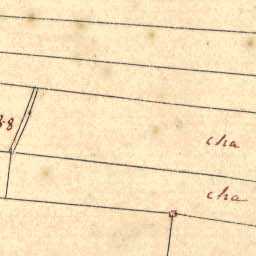 88
cha
cha